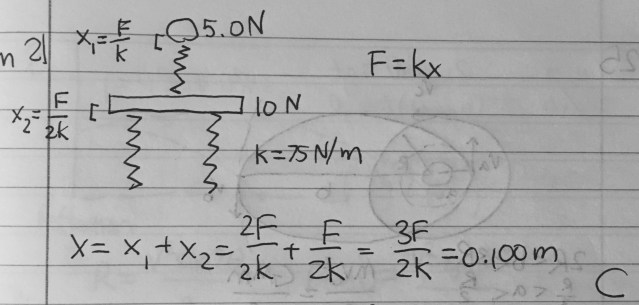 n 21
x₁ = F/k [ 5.0N
F = kx
x₂ = F/2k [ 10 N
k = 75 N/m
X = x₁ + x₂ = 2F/2k + F/2k = 3F/2k = 0.100m
C